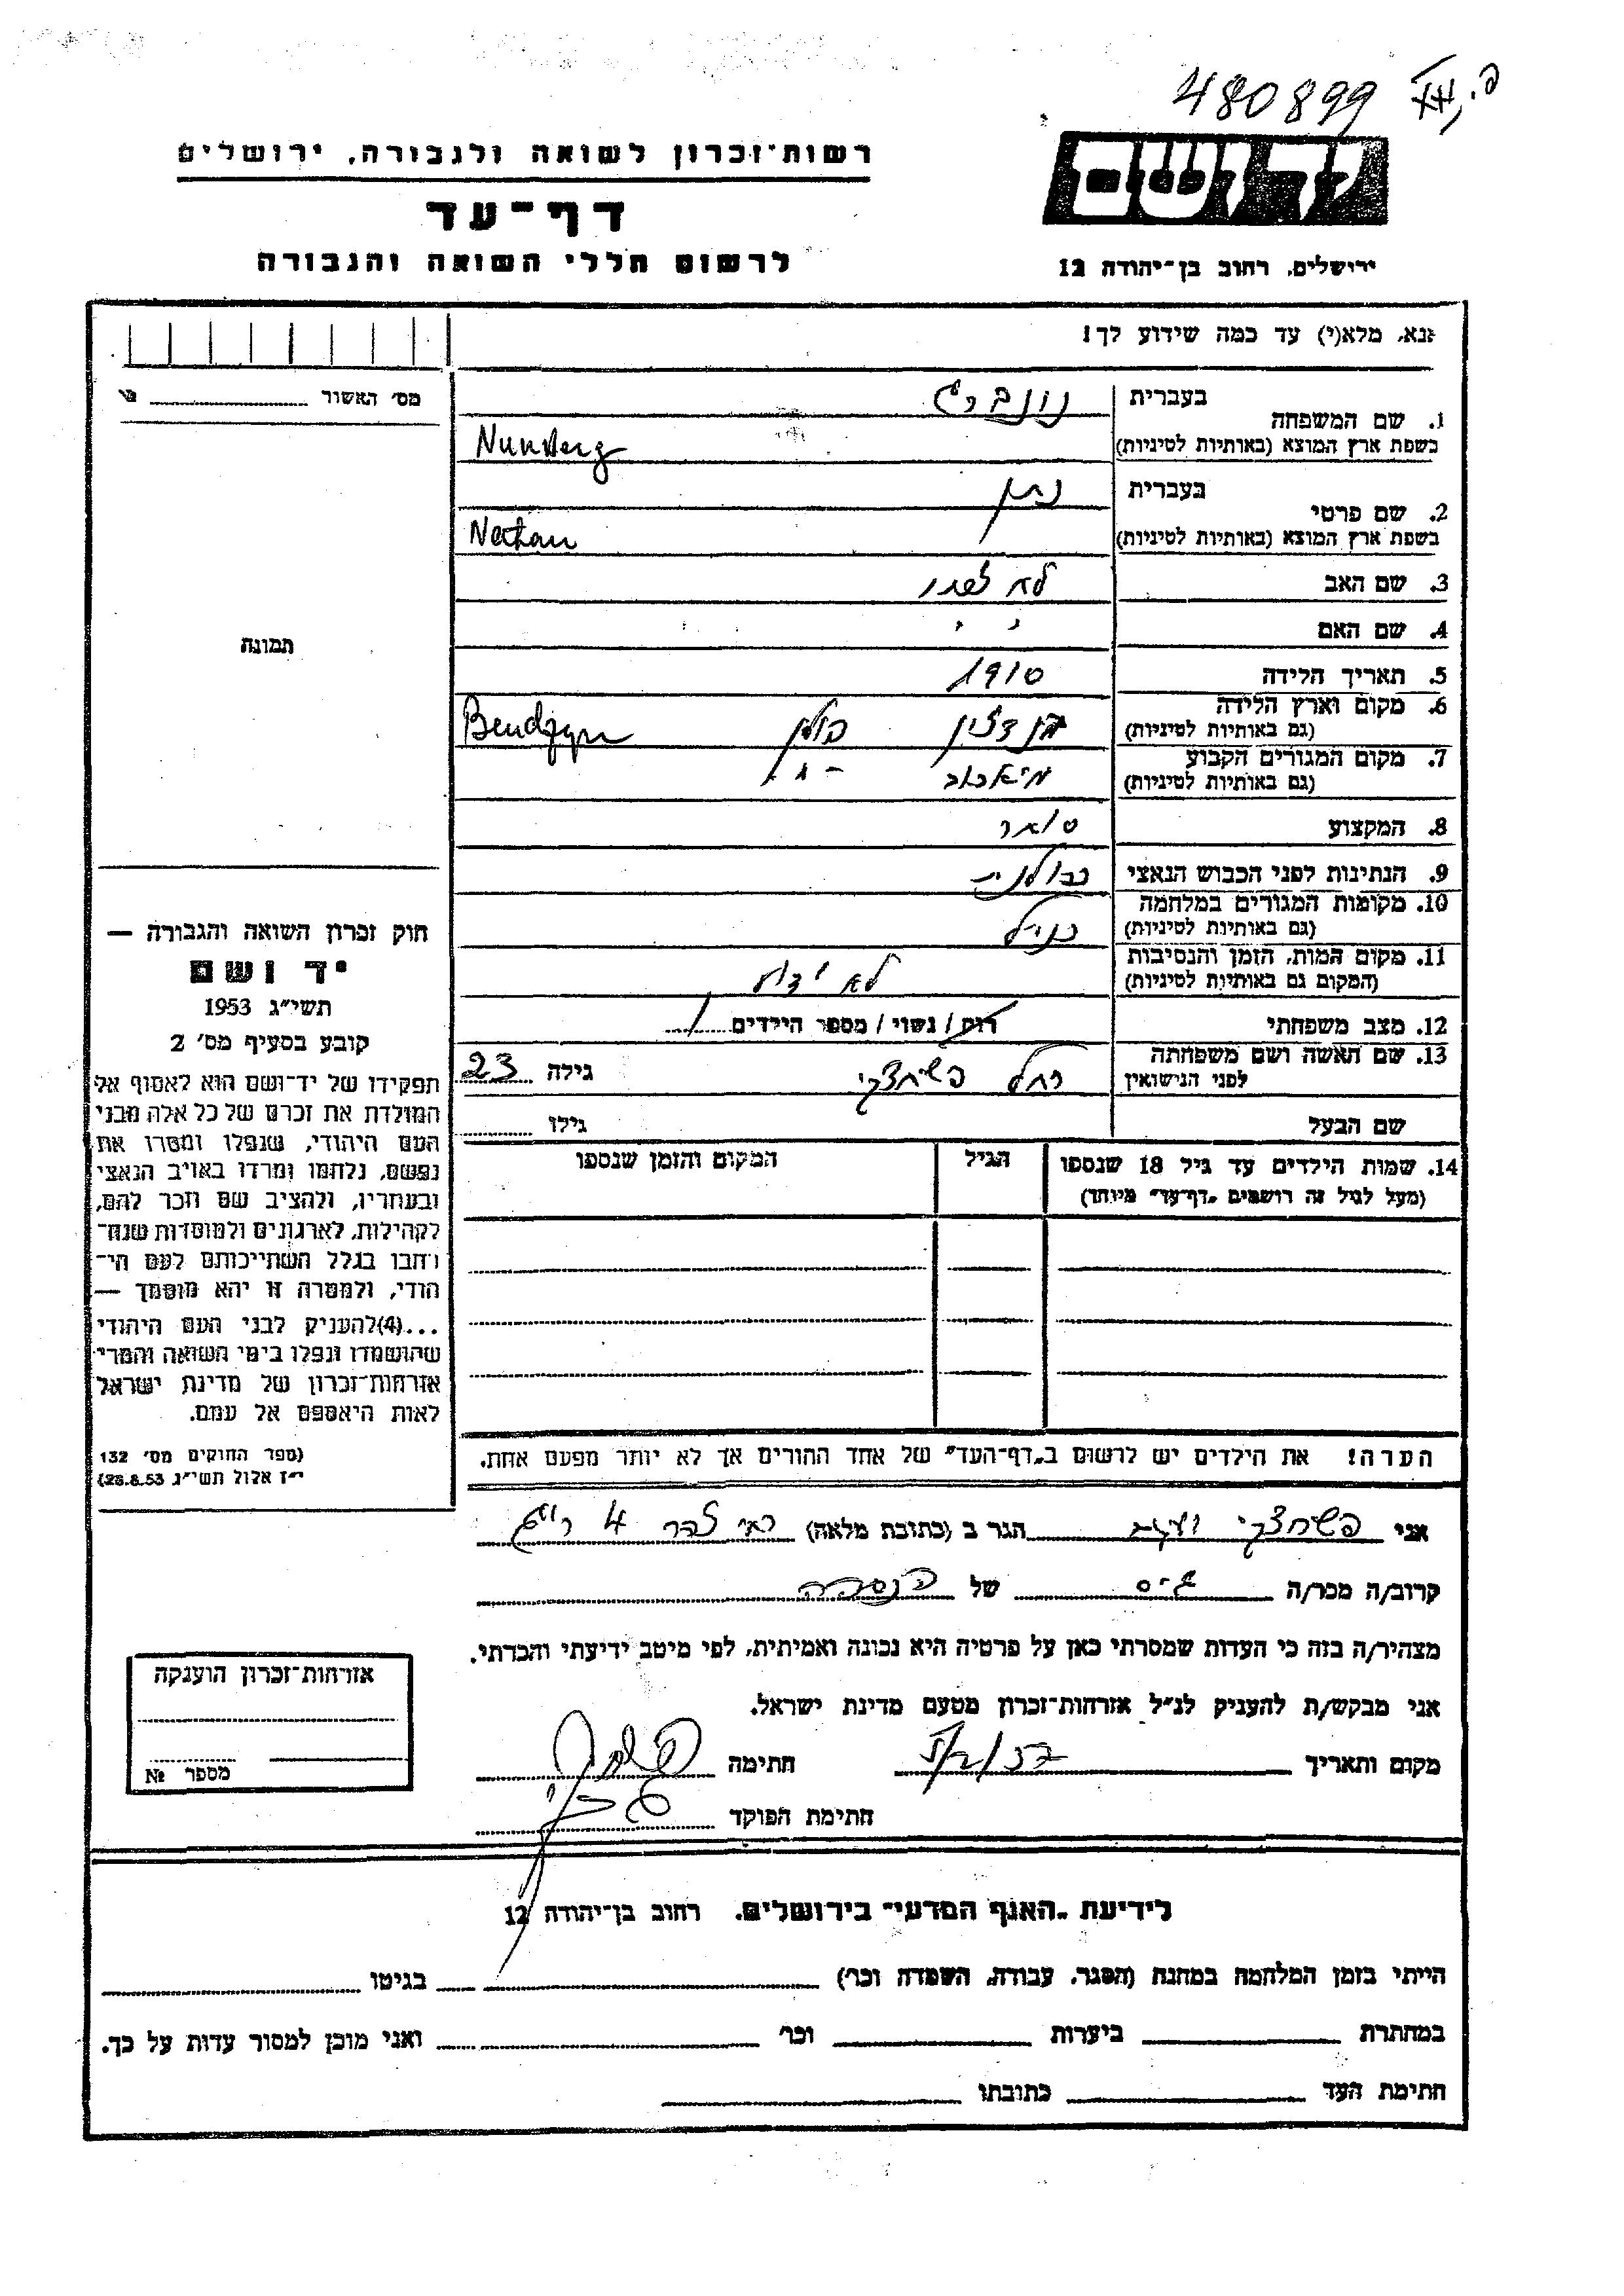 480899 XII, פ.
יד ושם
רשות-זכרון לשואה ולגבורה, ירושלים
דף-עד
לרשום חללי השואה והגבורה
ירושלים, רחוב בן-יהודה 12
נא, מלא(י) עד כמה שידוע לך!
מס׳ האשור
בעברית נונברג
1. שם המשפחה
בשפת ארץ המוצא (באותיות לטיניות) Nunberg
בעברית נתן
2. שם פרטי
בשפת ארץ המוצא (באותיות לטיניות) Nathan
3. שם האב לא
4. שם האם
תמונה
5. תאריך הלידה 1910
6. מקום וארץ הלידה
(גם באותיות לטיניות) בנדצין פולין Bendzyn
7. מקום המגורים הקבוע
(גם באותיות לטיניות)
8. המקצוע סוחר
9. הנתינות לפני הכבוש הנאצי פולנית
10. מקומות המגורים במלחמה
(גם באותיות לטיניות) כנ״ל
11. מקום המות, הזמן והנסיבות
(המקום גם באותיות לטיניות) לא ידוע
12. מצב משפחתי רוק/ נשוי / מספר הילדים 1
13. שם האשה ושם משפחתה
לפני הנישואין רחל פשחצקי גילה 23
שם הבעל גילו
14. שמות הילדים עד גיל 18 שנספו
(מעל לגיל זה רושמים „דף-עד״ מיוחד)
הגיל
המקום והזמן שנספו
הערה! את הילדים יש לרשום ב„דף-העד״ של אחד ההורים אך לא יותר מפעם אחת.
חוק זכרון השואה והגבורה —
יד ושם
תשי״ג 1953
קובע בסעיף מס׳ 2
תפקידו של יד-ושם הוא לאסוף אל
המולדת את זכרם של כל אלה מבני
העם היהודי, שנפלו ומסרו את
נפשם, נלחמו ומרדו באויב הנאצי
ובעוזריו, ולהציב שם וזכר להם,
לקהילות, לארגונים ולמוסדות שנח-
רחבו בגלל השתייכותם לעם הי-
הודי, ולמטרה זו יהא מוסמך —
...(4)להעניק לבני העם היהודי
שהושמדו ונפלו בימי השואה והמרי
אזרחות-זכרון של מדינת ישראל
לאות היאספם אל עמם.
(ספר החוקים מס׳ 132
י״ז אלול תשי״ג 28.8.53)
אני פשחצקי הגר ב (כתובת מלאה) 4
קרוב/ה מכר/ה גיס של הנספה
מצהיר/ה בזה כי העדות שמסרתי כאן על פרטיה היא נכונה ואמיתית, לפי מיטב ידיעתי והכרתי.
אני מבקש/ת להעניק לנ״ל אזרחות-זכרון מטעם מדינת ישראל.
מקום ותאריך חתימה
חתימת הפוקד
אזרחות-זכרון הוענקה
מספר №
לידיעת „האגף המדעי״ בירושלים. רחוב בן-יהודה 12
הייתי בזמן המלחמה במחנה (הסגר, עבודה, השמדה וכו׳) בגיטו
במחתרת ביערות וכו׳ ואני מוכן למסור עדות על כך.
חתימת העד כתובתו